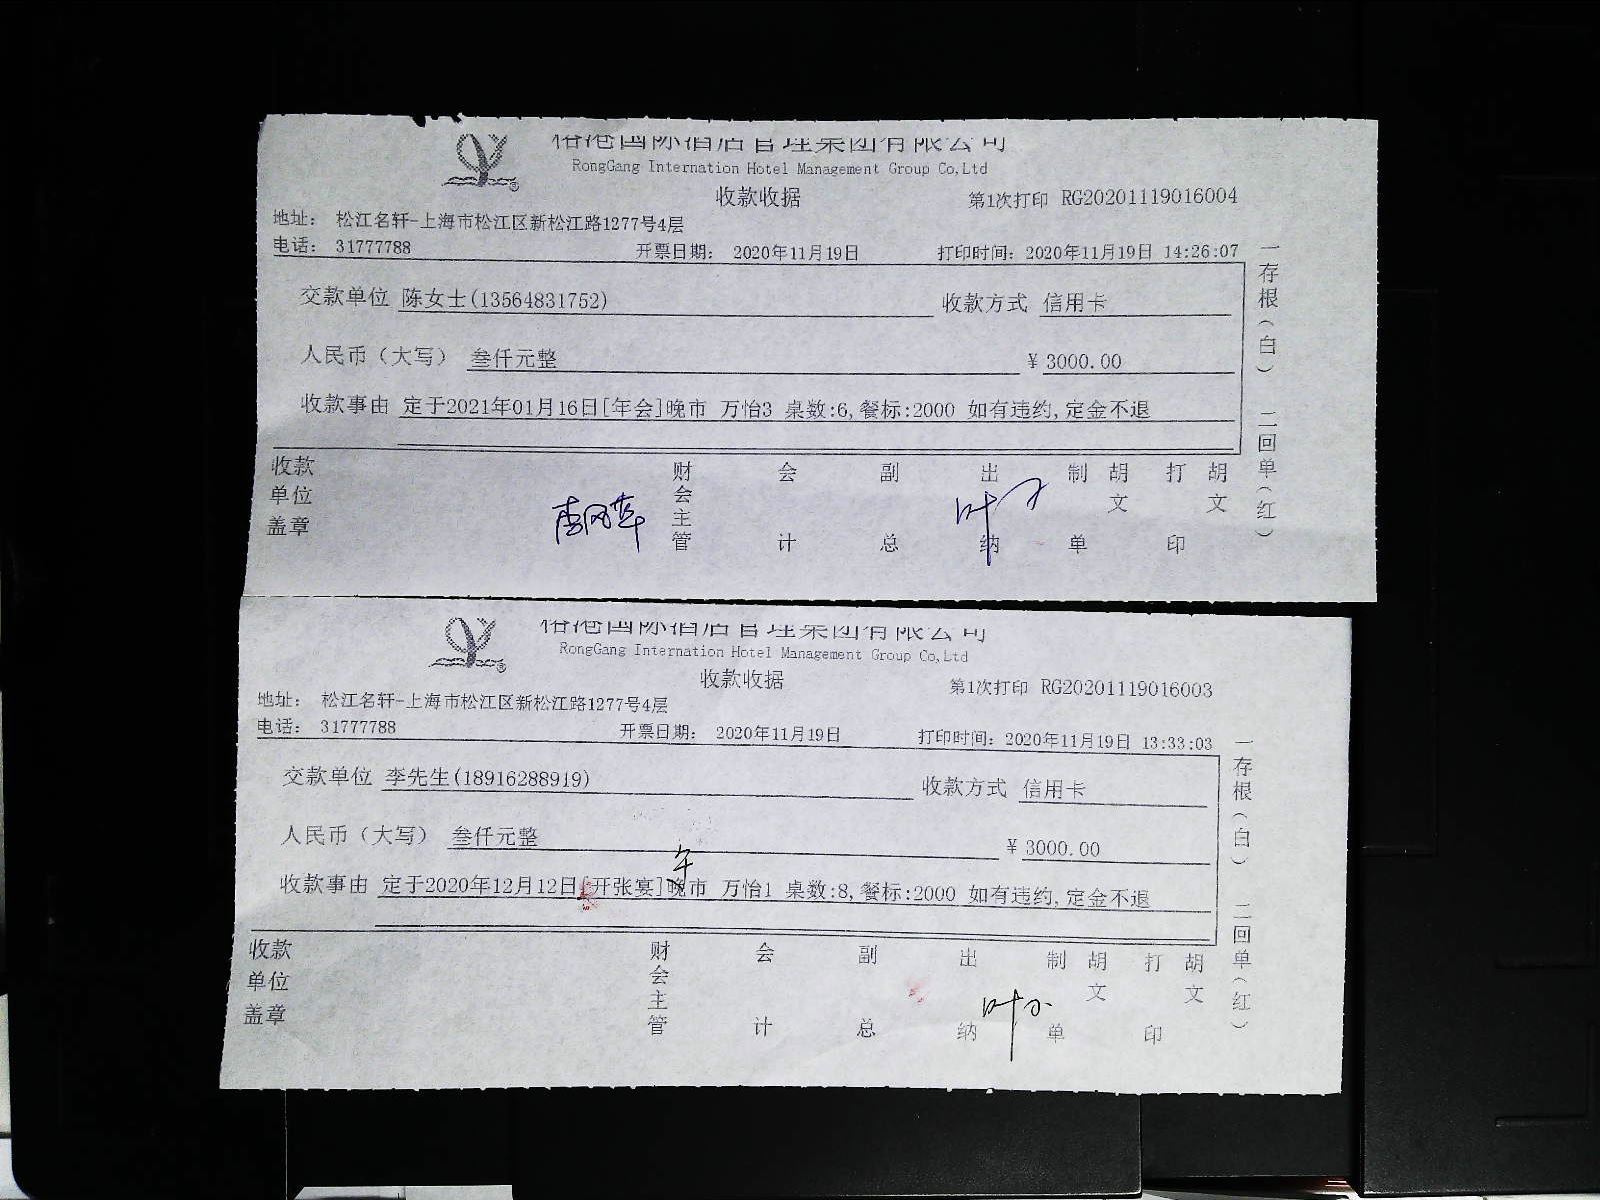 榕港国际酒店管理集团有限公司
RongGang Internation Hotel Management Group Co,Ltd
收款收据
第1次打印 RG20201119016004
地址： 松江名轩-上海市松江区新松江路1277号4层
电话： 31777788 开票日期： 2020年11月19日 打印时间：2020年11月19日 14:26:07
交款单位 陈女士(13564831752) 收款方式 信用卡
人民币（大写） 叁仟元整 ￥3000.00
收款事由 定于2021年01月16日[年会]晚市 万怡3 桌数:6,餐标:2000 如有违约,定金不退
一存根（白） 二回单（红）
收款单位盖章 财会主管 会计 副总 出纳 制单 胡文 打印 胡文
榕港国际酒店管理集团有限公司
RongGang Internation Hotel Management Group Co,Ltd
收款收据
第1次打印 RG20201119016003
地址： 松江名轩-上海市松江区新松江路1277号4层
电话： 31777788 开票日期： 2020年11月19日 打印时间：2020年11月19日 13:33:03
交款单位 李先生(18916288919) 收款方式 信用卡
人民币（大写） 叁仟元整 ￥3000.00
午
收款事由 定于2020年12月12日[开张宴]晚市 万怡1 桌数:8,餐标:2000 如有违约,定金不退
一存根（白） 二回单（红）
收款单位盖章 财会主管 会计 副总 出纳 制单 胡文 打印 胡文